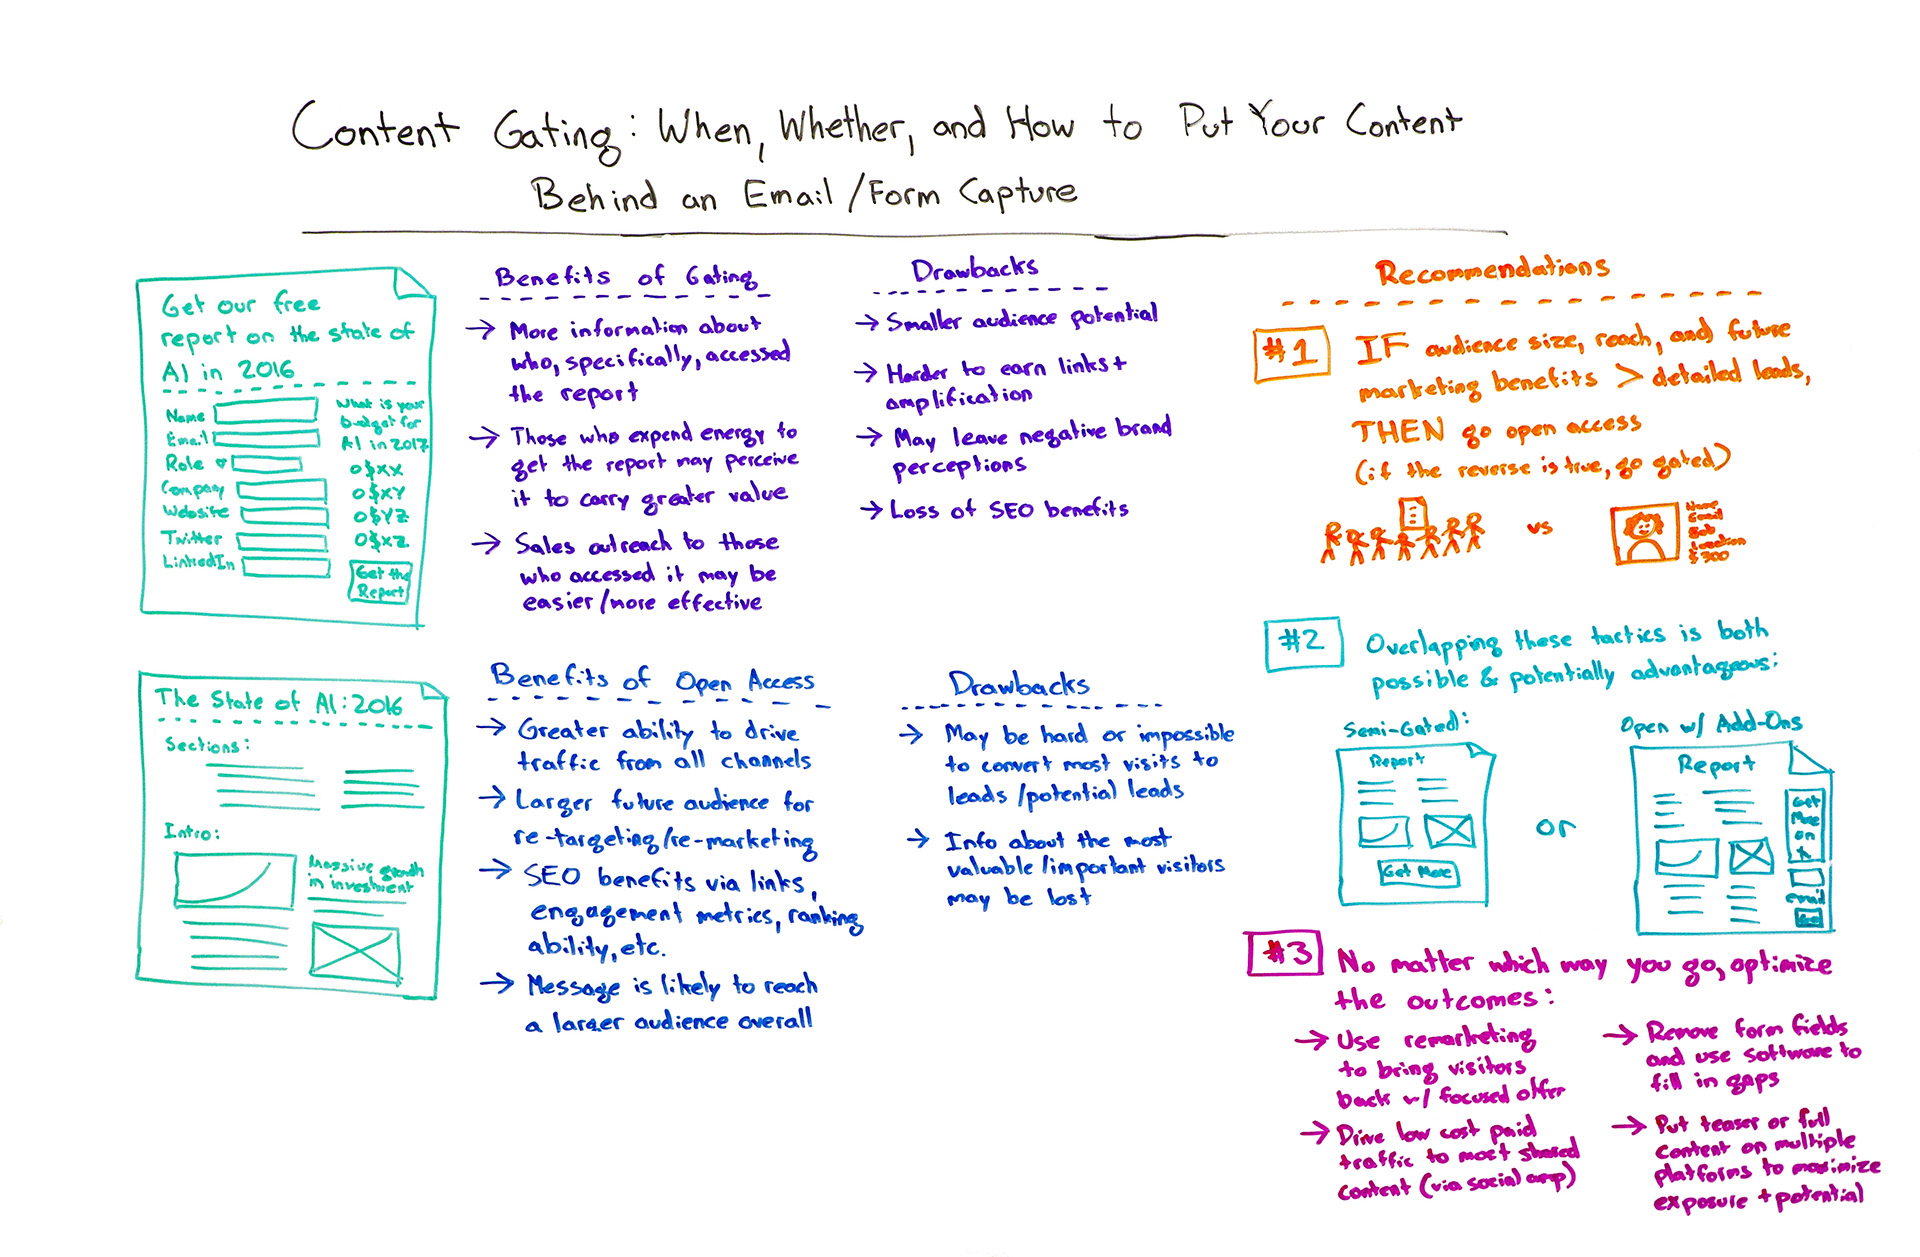 Content Gating: When, Whether, and How to Put Your Content
Behind an Email/Form Capture
Get our free
report on the state of
AI in 2016
Name
Email
Role
Company
Website
Twitter
LinkedIn
What is your
budget for
AI in 2017
$XX
$XY
$YZ
$XZ
Get the
Report
Benefits of Gating
→ More information about
who, specifically, accessed
the report
→ Those who expend energy to
get the report may perceive
it to carry greater value
→ Sales outreach to those
who accessed it may be
easier/more effective
Drawbacks
→ Smaller audience potential
→ Harder to earn links +
amplification
→ May leave negative brand
perceptions
→ Loss of SEO benefits
The State of AI: 2016
Sections:
Intro:
Massive growth
in investment
Benefits of Open Access
→ Greater ability to drive
traffic from all channels
→ Larger future audience for
re-targeting/re-marketing
→ SEO benefits via links,
engagement metrics, ranking
ability, etc.
→ Message is likely to reach
a larger audience overall
Drawbacks
→ May be hard or impossible
to convert most visits to
leads/potential leads
→ Info about the most
valuable/important visitors
may be lost
Recommendations
#1
IF audience size, reach, and future
marketing benefits > detailed leads,
THEN go open access
(if the reverse is true, go gated)
vs
Name
Email
Job
Location
$300
#2
Overlapping these tactics is both
possible & potentially advantageous:
Semi-Gated:
Report
Get More
or
Open w/ Add-Ons
Report
Get
More
on
X
email
Go!
#3
No matter which way you go, optimize
the outcomes:
→ Use remarketing
to bring visitors
back w/ focused offer
→ Drive low cost paid
traffic to most shared
content (via social amp)
→ Remove form fields
and use software to
fill in gaps
→ Put teaser or full
content on multiple
platforms to maximize
exposure + potential